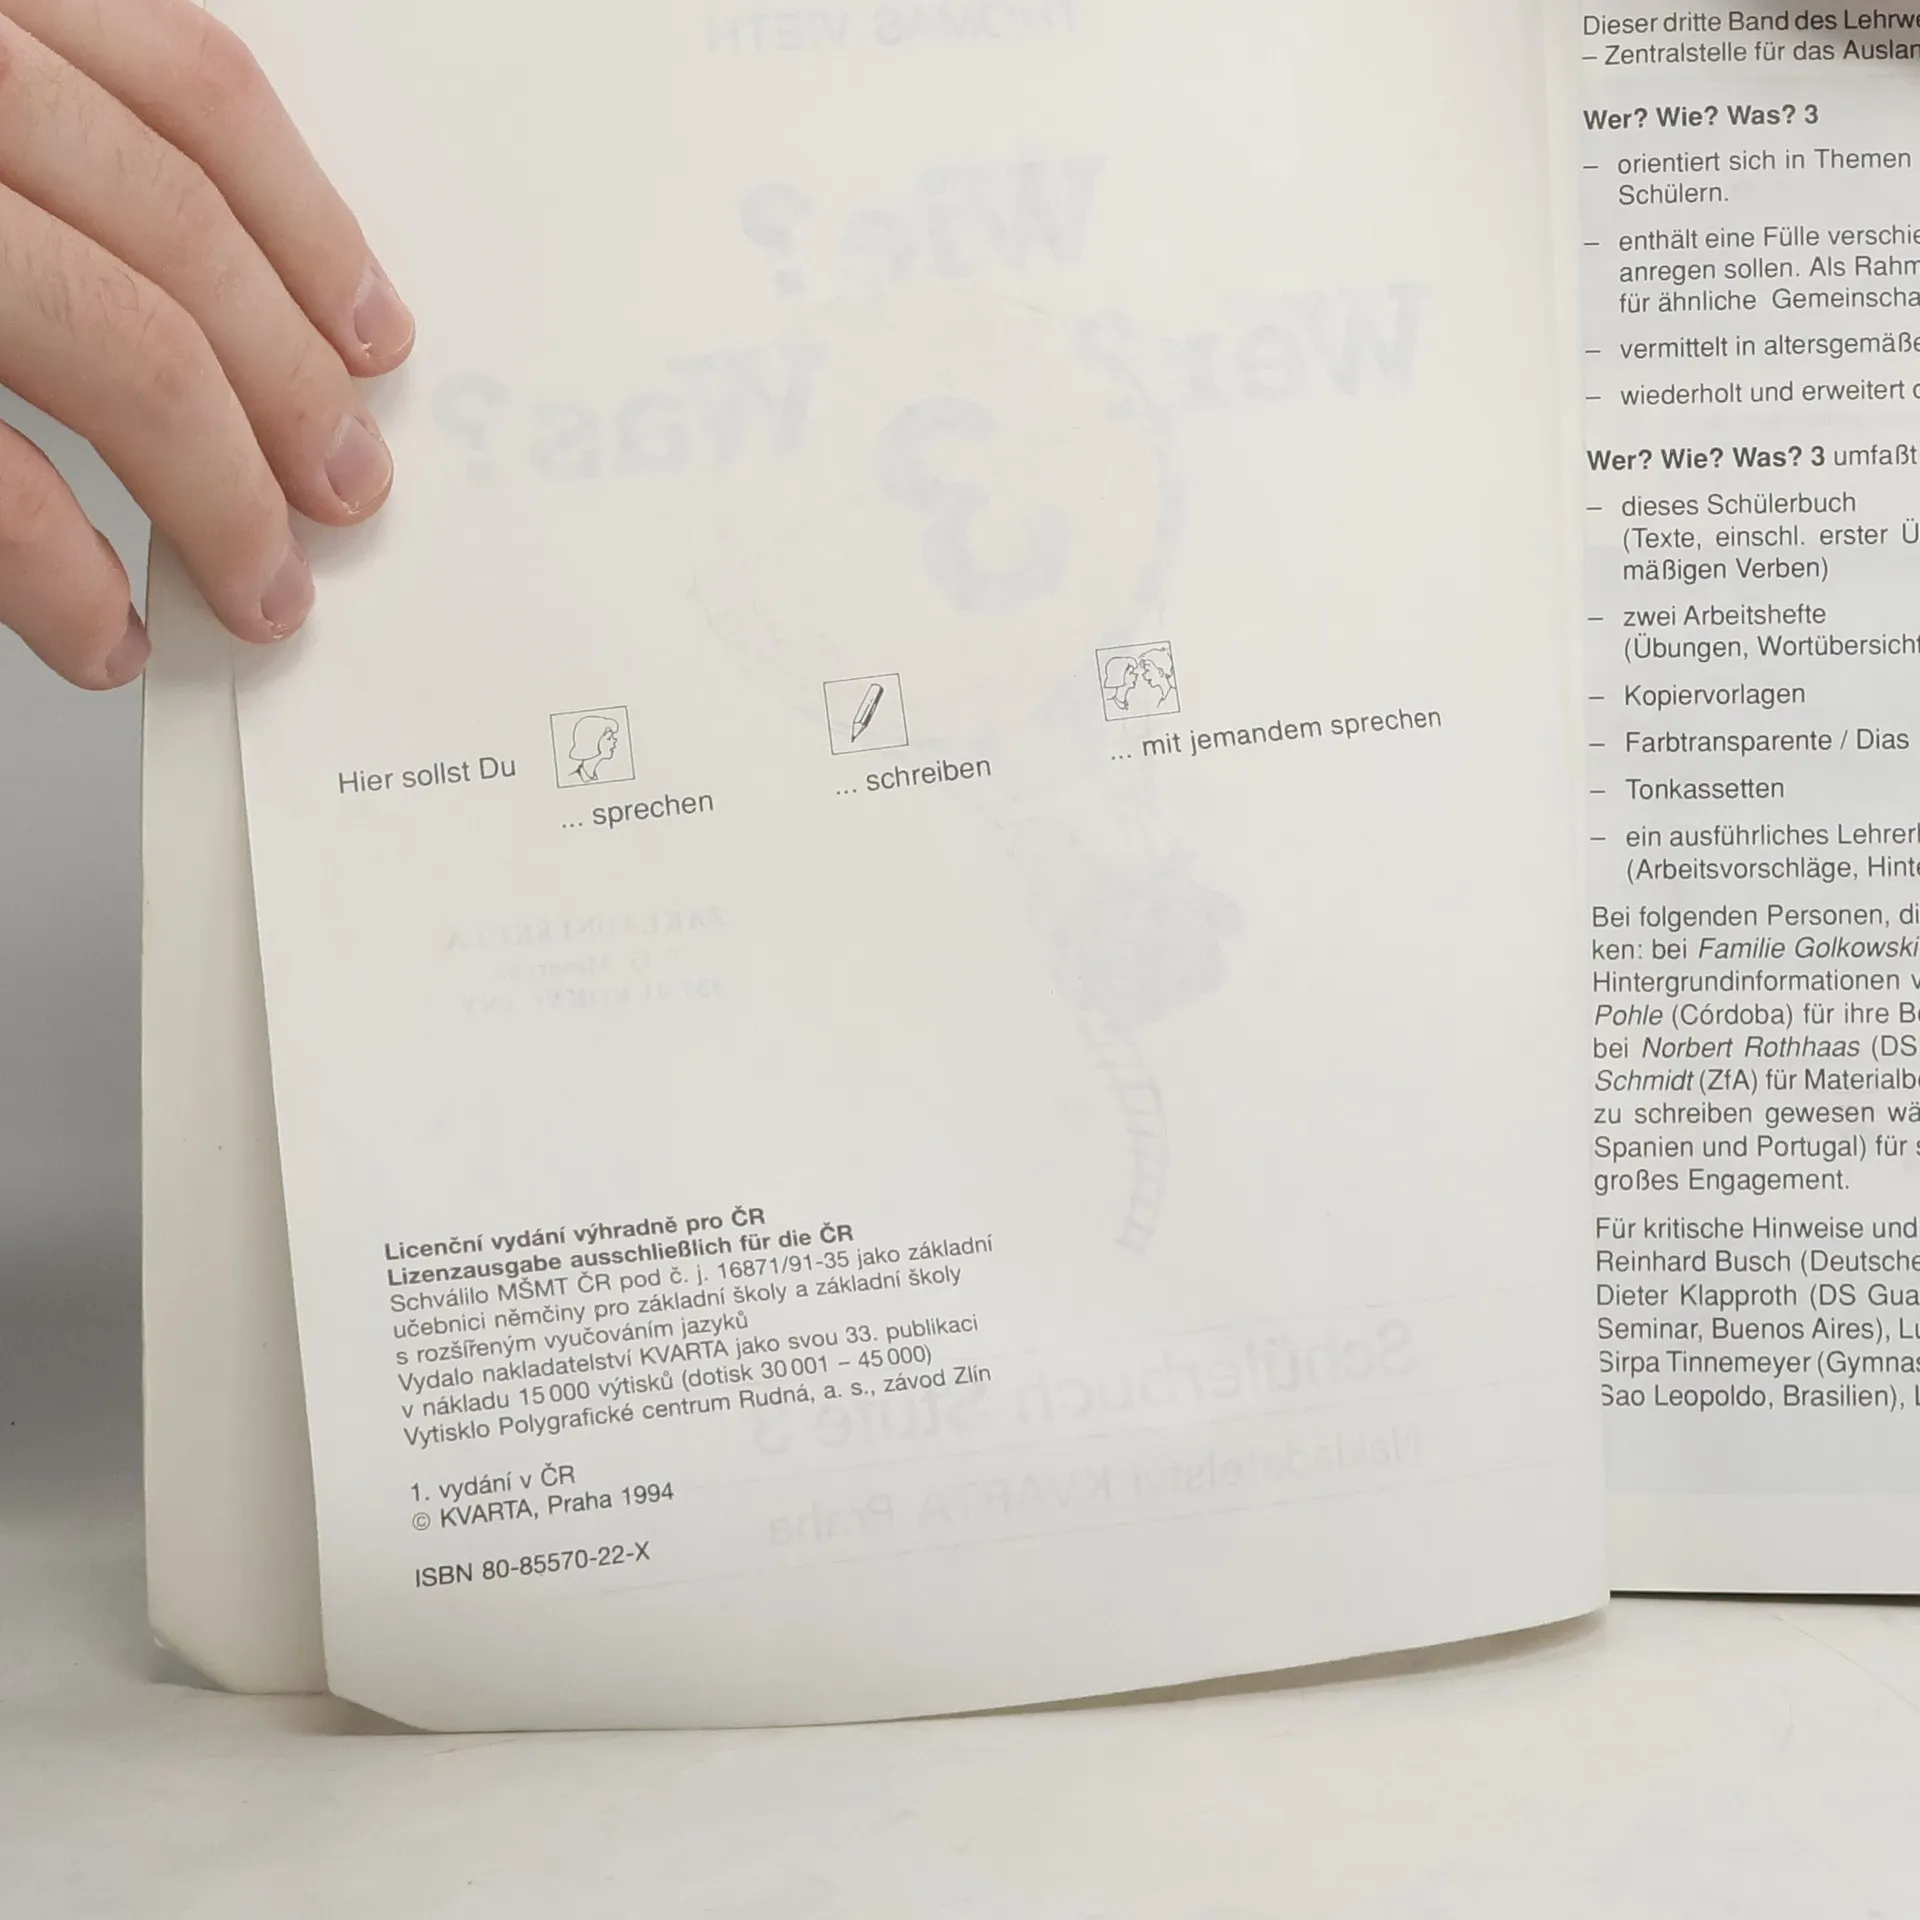 Hier sollst Du
... sprechen
... schreiben
... mit jemandem sprechen
Licenční vydání výhradně pro ČR
Lizenzausgabe ausschließlich für die ČR
Schválilo MŠMT ČR pod č. j. 16871/91-35 jako základní
učebnici němčiny pro základní školy a základní školy
s rozšířeným vyučováním jazyků
Vydalo nakladatelství KVARTA jako svou 33. publikaci
v nákladu 15 000 výtisků (dotisk 30 001 – 45 000)
Vytisklo Polygrafické centrum Rudná, a. s., závod Zlín
1. vydání v ČR
© KVARTA, Praha 1994
ISBN 80-85570-22-X
Dieser dritte Band des
– Zentralstelle für das
Wer? Wie? Was? 3
– orientiert sich in Themen
Schülern.
– enthält eine Fülle
anregen sollen. Als
für ähnliche
– vermittelt in
– wiederholt und erweitert
Wer? Wie? Was? 3 umfaßt
– dieses Schülerbuch
(Texte, einschl. erster
mäßigen Verben)
– zwei Arbeitshefte
(Übungen,
– Kopiervorlagen
– Farbtransparente / Dias
– Tonkassetten
– ein ausführliches
(Arbeitsvorschläge,
Bei folgenden Personen,
ken: bei Familie Golkowski
Hintergrundinformationen
Pohle (Córdoba) für ihre
bei Norbert Rothhaas (DS
Schmidt (ZfA) für
zu schreiben gewesen
Spanien und Portugal) für
großes Engagement.
Für kritische Hinweise und
Reinhard Busch (Deutsche
Dieter Klapproth (DS
Seminar, Buenos Aires),
Sirpa Tinnemeyer
Sao Leopoldo, Brasilien),